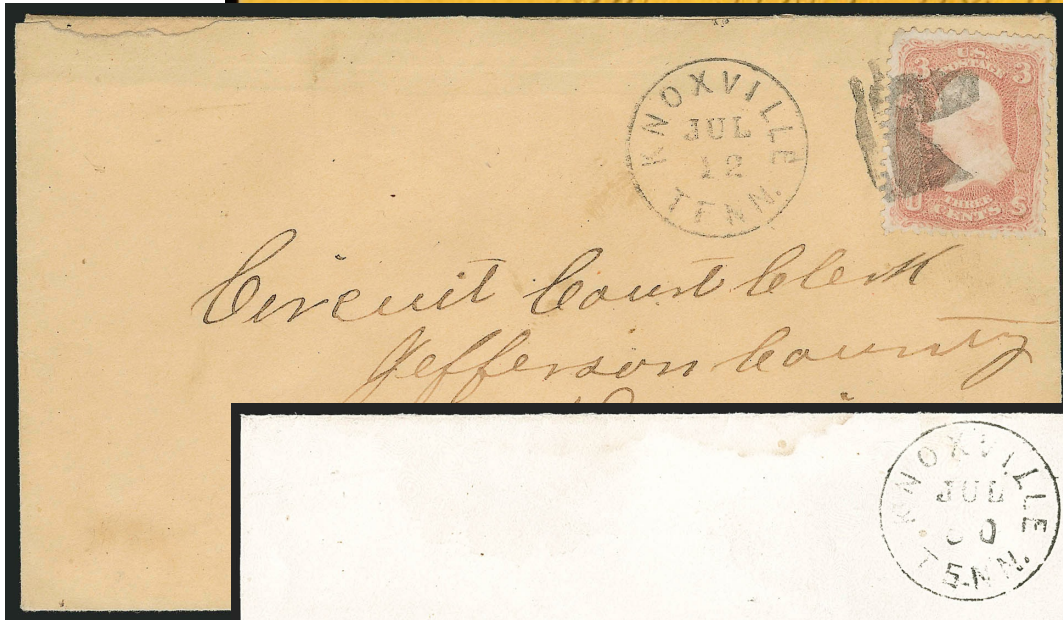 KNOXVILLE
JUL
12
TENN.
3 U.S. 3
POSTAGE
THREE
CENTS
U S
Circuit Court Clerk
Jefferson County
KNOXVILLE
JUL
TENN.